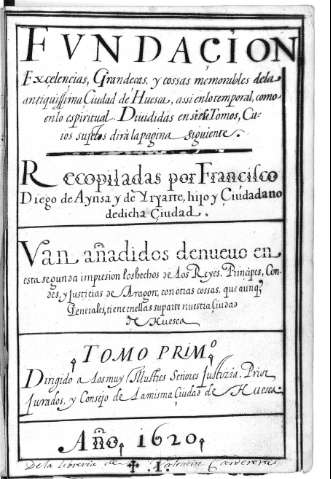 FVNDACION
Excelencias, Grandeças, y cossas memorables dela
antiquissima Ciudad de Huesca, assi enlo temporal, como
enlo espiritual Diuididas en siete Tomos, Cu-
ios sujetos dirà la pagina siguiente.
Recopiladas por Francisco
Diego de Aynsa y de Yryarte, hijo y Ciudadano
dedicha Ciudad.
Van añadidos denueuo en
esta segunda impresion los hechos de los Reyes, Principes, Con-
des, y Justicias de Aragon, con otras cossas, que aunq̃
Generales, tiene en ellas su parte nuestra Ciudad
de Huesca
TOMO PRIMº
Dirigido a los muy Illustres Señores Justizia, Prior
Jurados, y Consejo de la misma Ciudad de Huesca.
Año, 1620,
De la libreria de Valentin Carderera